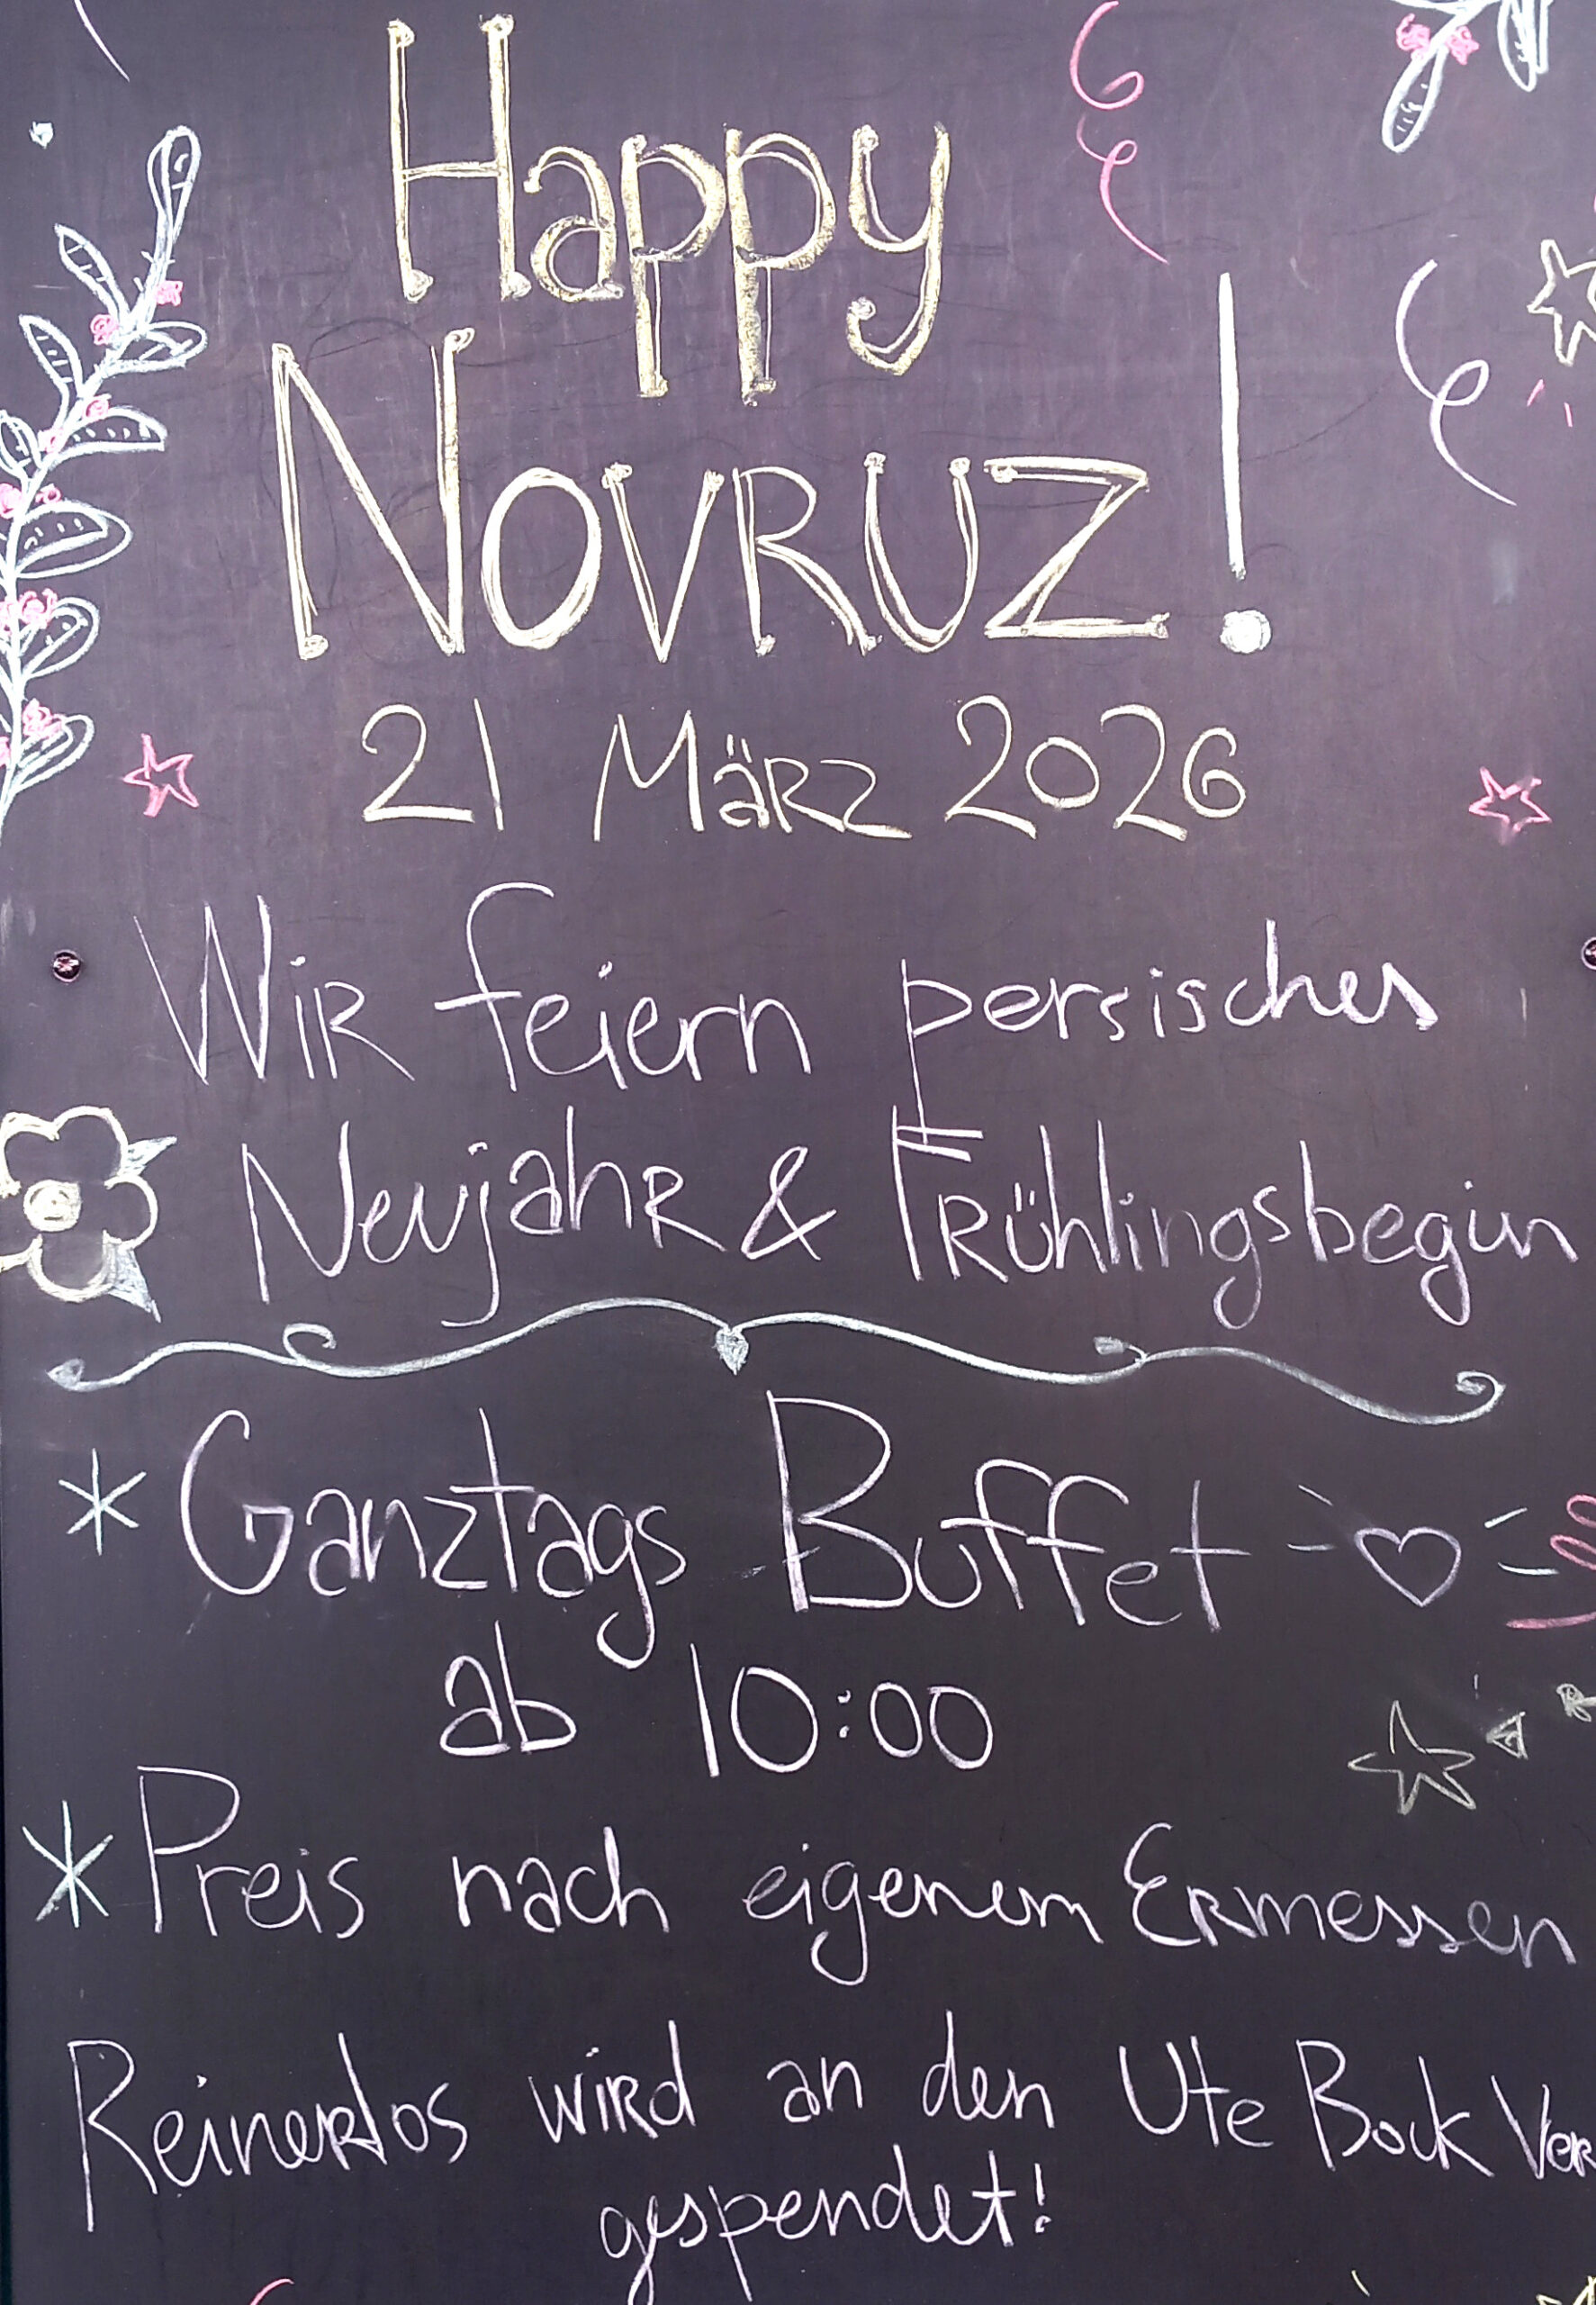 Happy
NOVRUZ!
21 März 2026
Wir feiern persisches
Neujahr & Frühlingsbegin
* Ganztags Buffet
ab 10:00
* Preis nach eigenem Ermessen
Reinerlos wird an den Ute Bock Ver
gespendet!